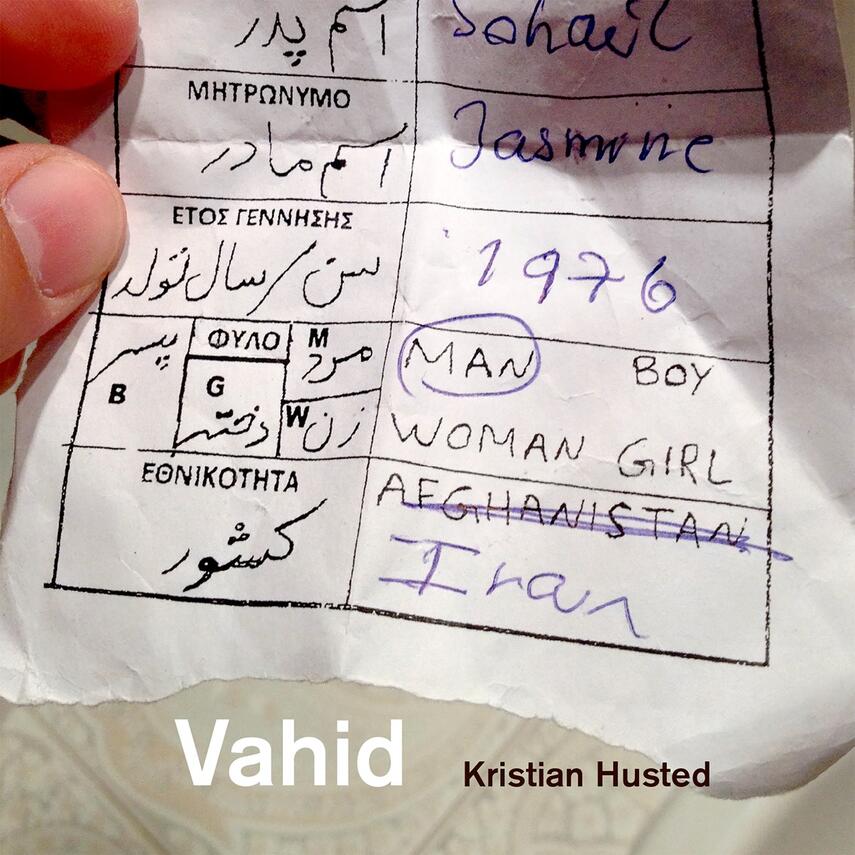 اسم پدر
Sohail
ΜΗΤΡΩΝΥΜΟ
اسم مادر
Jasmine
ΕΤΟΣ ΓΕΝΝΗΣΗΣ
سن / سال تولد
1976
پسر
B
ΦΥΛΟ
G
دختر
M
مرد
W
زن
MAN BOY
WOMAN GIRL
ΕΘΝΙΚΟΤΗΤΑ
کشور
AFGHANISTAN
Iran
Vahid
Kristian Husted